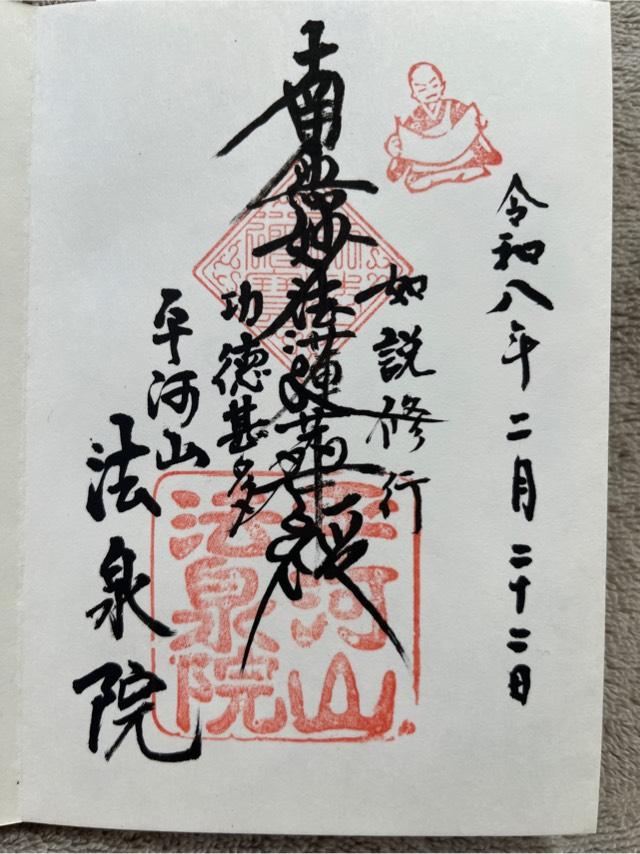 令和八年二月二十二日
如説修行
南無妙法蓮華経
功徳甚多
平河山
法泉院
平河山
法泉院